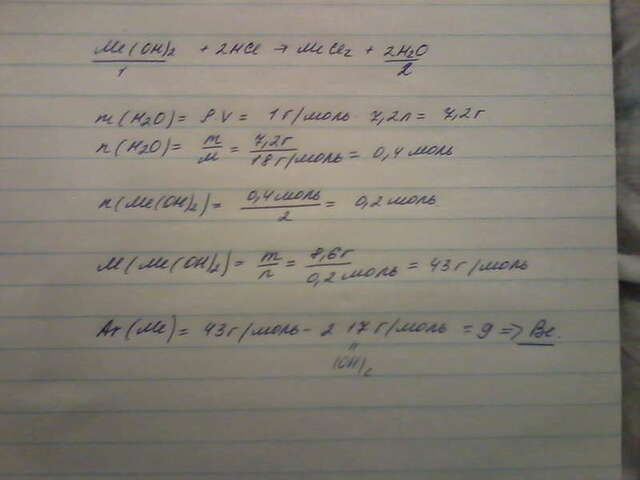 Me(OH)₂ + 2HCl → MeCl₂ + 2H₂O
1 2
m(H₂O) = ρV = 1г/моль · 7,2л = 7,2г
n(H₂O) = m/M = 7,2г/18г/моль = 0,4моль
n(Me(OH)₂) = 0,4моль/2 = 0,2моль
M(Me(OH)₂) = m/n = 8,6г/0,2моль = 43г/моль
Ar(Me) = 43г/моль - 2 · 17г/моль = 9 => Be.
(OH)₂